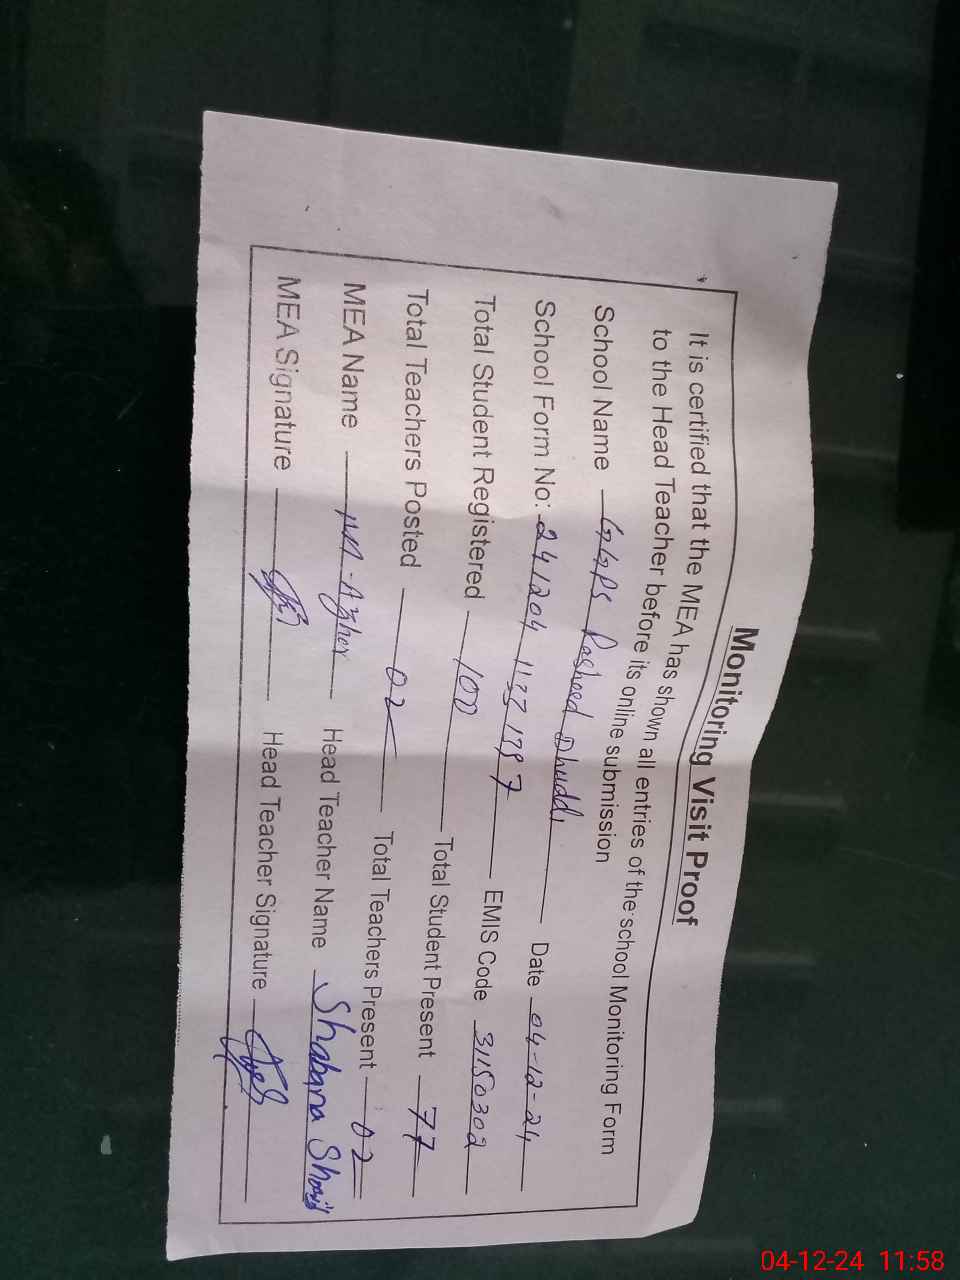 Monitoring Visit Proof
It is certified that the MEA has shown all entries of the school Monitoring Form
to the Head Teacher before its online submission
School Name GGPS Rasheed Dhuddi Date 04-12-24
School Form No: 241204 1133 1397 EMIS Code 31150302
Total Student Registered 100 Total Student Present 77
Total Teachers Posted 02 Total Teachers Present 02
MEA Name M-Azher Head Teacher Name Shabana
MEA Signature Head Teacher Signature
04-12-24 11:58